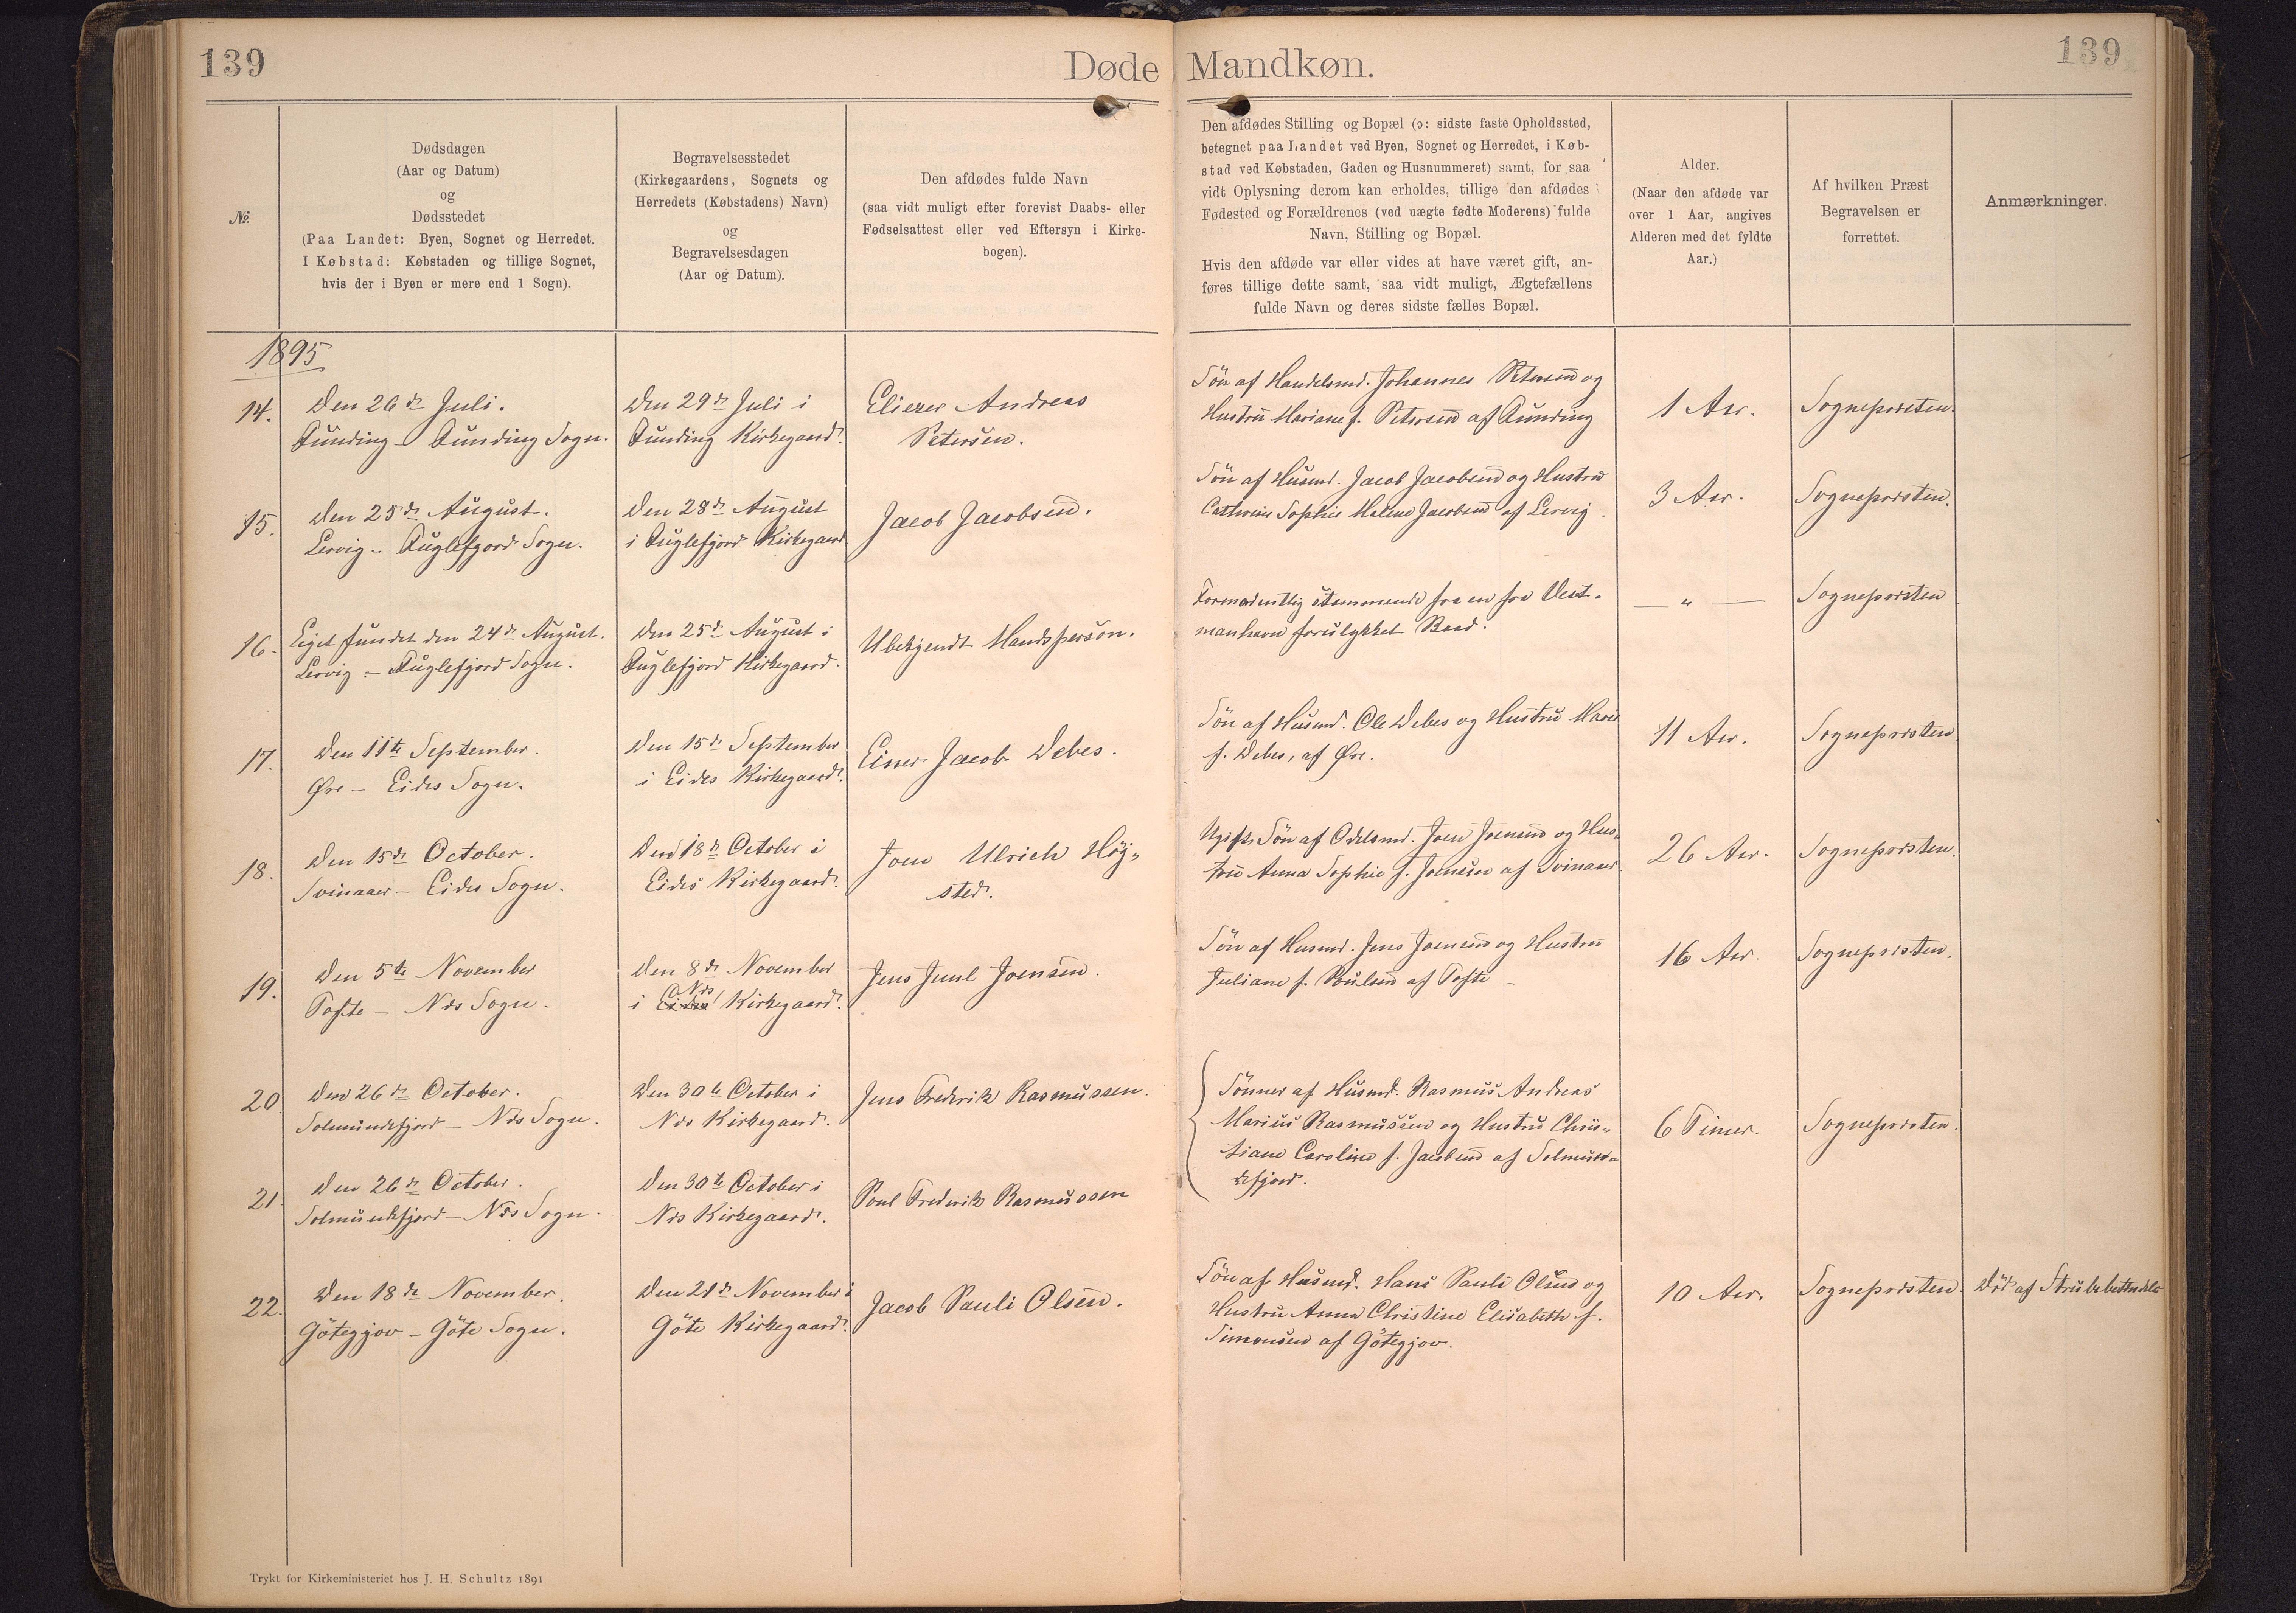 139
Døde Mandkøn.
139
№.
Dødsdagen
(Aar og Datum)
og
Dødsstedet
(Paa Landet: Byen, Sognet og Herredet.
I Købstad: Købstaden og tillige Sognet,
hvis der i Byen er mere end 1 Sogn).
Begravelsesstedet
(Kirkegaardens, Sognets og
Herredets (Købstadens) Navn)
og
Begravelsesdagen
(Aar og Datum).
Den afdødes fulde Navn
(saa vidt muligt efter forevist Daabs- eller
Fødselsattest eller ved Eftersyn i Kirke-
bogen).
Den afdødes Stilling og Bopæl (ɔ: sidste faste Opholdssted,
betegnet paa Landet ved Byen, Sognet og Herredet, i Køb-
stad ved Købstaden, Gaden og Husnummeret) samt, for saa
vidt Oplysning derom kan erholdes, tillige den afdødes
Fødested og Forældrenes (ved uægte fødte Moderens) fulde
Navn, Stilling og Bopæl.
Hvis den afdøde var eller vides at have været gift, an-
føres tillige dette samt, saa vidt muligt, Ægtefællens
fulde Navn og deres sidste fælles Bopæl.
Alder.
(Naar den afdøde var
over 1 Aar, angives
Alderen med det fyldte
Aar.)
Af hvilken Præst
Begravelsen er
forrettet.
Anmærkninger.
1895
14.
Den 26de Juli.
Funding - Funding Sogn.
Den 29de Juli i
Funding Kirkegaard.
Eliezer Andreas
Petersen.
Søn af Handelsmd. Johannes Petersen og
Hustru Mariane f. Petersen af Funding
1 Aar.
Sognepræsten.
15.
Den 25de August.
Lervig - Fuglefjord Sogn.
Den 28de August
i Fuglefjord Kirkegaard
Jacob Jacobsen.
Søn af Husmd. Jacob Jacobsen og Hustru
Catherine Sophie Malene Jacobsen af Lervig.
3 Aar.
Sognepræsten.
16.
Liget fundet den 24de August.
Lervig - Fuglefjord Sogn.
Den 25de August i
Fuglefjord Kirkegaard.
Ubekjendt Mandsperson.
Formodentlig stammende fra en fra Vest-
manhavn forulykket Baad.
— " —
Sognepræsten
17.
Den 11te September.
Øre - Eides Sogn.
Den 15de September
i Eides Kirkegaard.
Einer Jacob Debes.
Søn af Husmd. Ole Debes og Hustru Marie
f. Debes, af Øre.
11 Aar.
Sognepræsten.
18.
Den 15de October.
Svinaaer - Eides Sogn.
Den 18de October i
Eides Kirkegaard.
Joen Ulrich Höj-
sted.
Ugift. Søn af Odelsmd. Joen Joensen og Hus-
tru Anna Sophie f. Joensen af Svinaaer.
26 Aar.
Sognepræsten.
19.
Den 5te November
Tofte - Næs Sogn.
Den 8de November
Næs
i Eides Kirkegaard.
Jens Juul Joensen.
Søn af Husmd. Jens Joensen og Hustru
Juliane f. Poulsen af Tofte -
16 Aar.
Sognepræsten.
20.
Den 26de October.
Solmundefjord - Næs Sogn.
Den 30te October i
Næs Kirkegaard.
Jens Frederik Rasmussen.
Sønner af Husmd. Rasmus Andreas
Marius Rasmussen og Hustru Chris-
tiane Caroline f. Jacobsen af Solmun-
defjord.
6 Timer.
Sognepræsten.
21.
Den 26de October.
Solmundefjord - Næs Sogn.
Den 30te October i
Næs Kirkegaard.
Poul Frederik Rasmussen
22.
Den 18de November.
Götegjov - Göte Sogn.
Den 21de November i
Göte Kirkegaard.
Jacob Pauli Olsen.
Søn af Husmd. Hans Pauli Olsen og
Hustru Anna Christine Elisabeth f.
Simonsen af Götegjov.
10 Aar.
Sognepræsten.
Død af Strubebetændelse
Trykt for Kirkeministeriet hos J. H. Schultz 1891